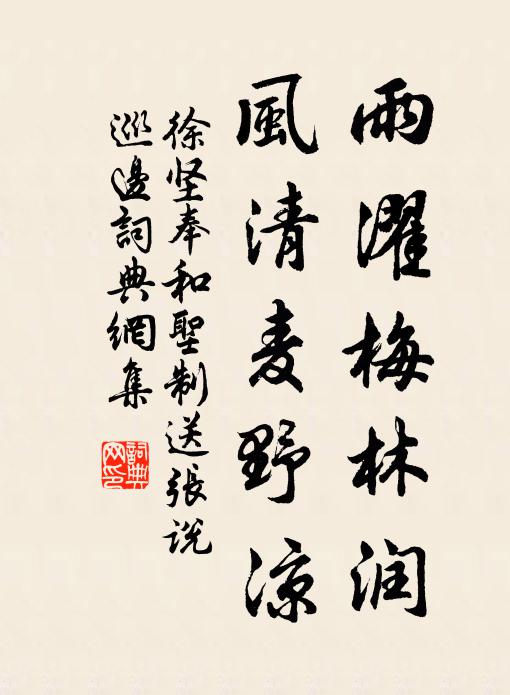 雨濯梅林润
風清麦野凉
徐坚奉和聖制送張说
巡邊詞典網集
詞典网印